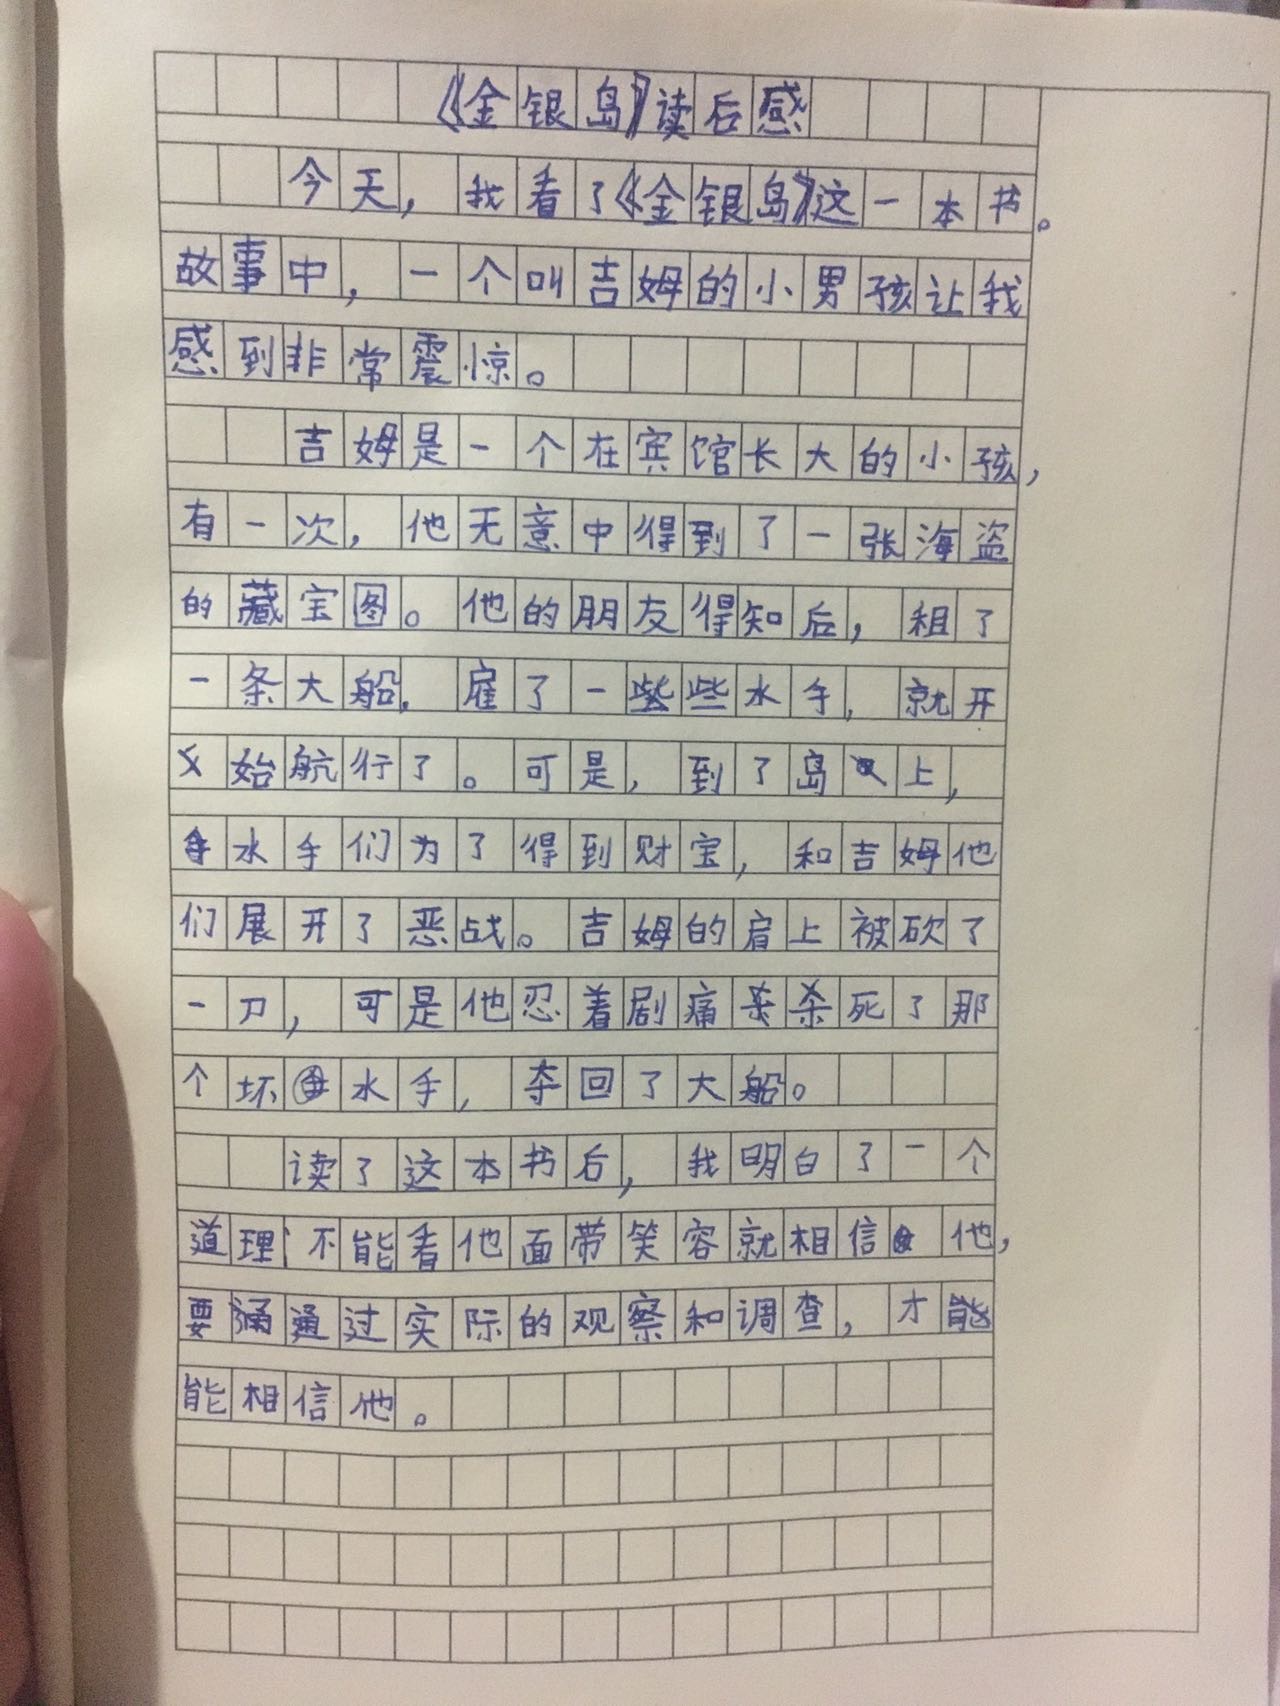 《金银岛》读后感
今天，我看了《金银岛》这一本书。
故事中，一个叫吉姆的小男孩让我
感到非常震惊。
吉姆是一个在宾馆长大的小孩，
有一次，他无意中得到了一张海盗
的藏宝图。他的朋友得知后，租了
一条大船，雇了一些些水手，就开
始航行了。可是，到了岛上，
水手们为了得到财宝，和吉姆他
们展开了恶战。吉姆的肩上被砍了
一刀，可是他忍着剧痛杀死了那
个坏水手，夺回了大船。
读了这本书后，我明白了一个
道理：不能看他面带笑容就相信他，
要通过实际的观察和调查，才能
能相信他。